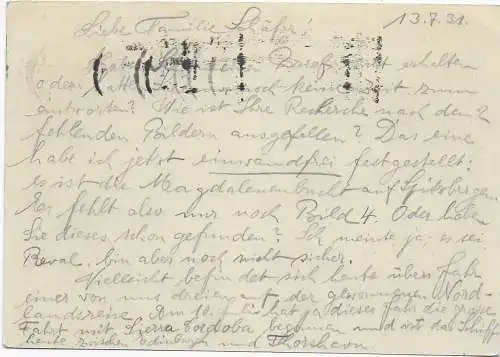 13.7.31.
Liebe Familie Schäfer!
Haben Sie meinen Brief nicht erhalten
oder hatten Sie nur noch keine Zeit zum
antworten? Wie ist Ihre Recherche nach den 2
fehlenden Bildern ausgefallen? Das eine
habe ich jetzt einwandfrei festgestellt:
es ist die Magdalenenbucht auf Spitzbergen.
Es fehlt also nur noch Bild 4. Oder haben
Sie dieses schon gefunden? Ich meinte ja, es sei
Reval, bin aber noch nicht sicher.
Vielleicht befindet sich heute übers Jahr
einer von uns dreien auf der gewonnenen Nord-
landsreise. Am 10. Juli hat ja dieses Jahr die große
Fahrt mit Sierra Cordoba begonnen und ist das Schiff
heute zwischen Edinburgh und Thorshavn.